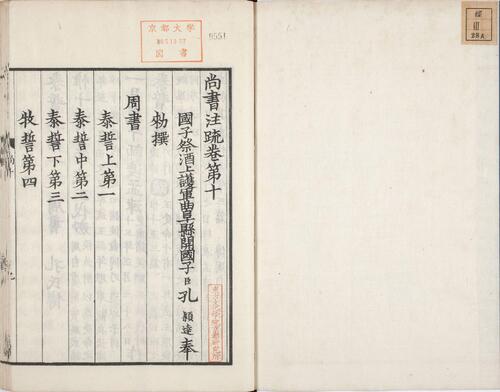 尚書注疏卷第十
國子祭酒上護軍曲阜縣開國子臣孔穎達奉
勑撰
周書
泰誓上第一
泰誓中第二
泰誓下第三
牧誓第四
京都大学
図書
9551